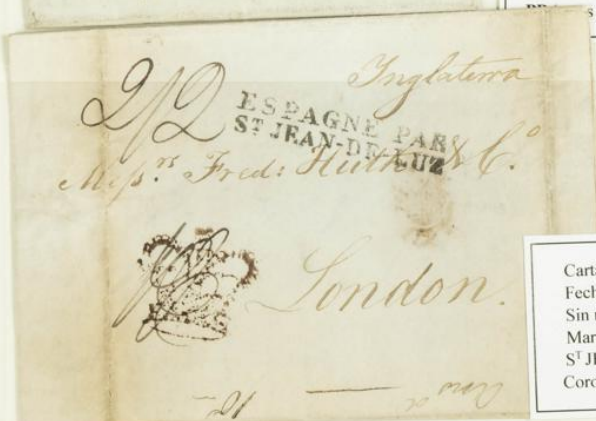 Inglaterra
2/2
ESPAGNE PAR
Sᵀ JEAN-DE-LUZ
Messrs. Fred: Huth & Co.
London.
Carta
Fech
Sin
Mar
Sᵀ JE
Coro